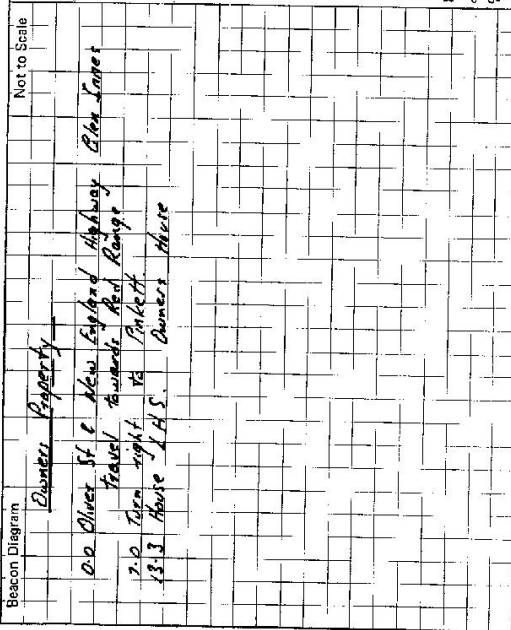 Beacon Diagram Not to Scale
Owners Property
0.0 Oliver St & New England Highway Glen Innes
travel towards Red Range
7.0 Turn right to Pinkett.
13.3 House LHS. Owners House